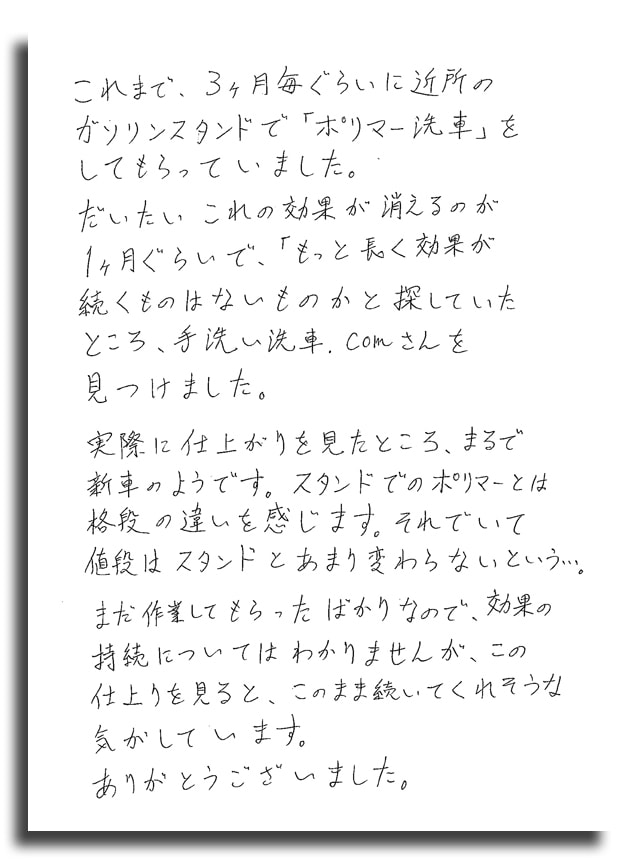 これまで、3ヶ月毎ぐらいに近所の
ガソリンスタンドで「ポリマー洗車」を
してもらっていました。
だいたいこれの効果が消えるのが
1ヶ月ぐらいで、「もっと長く効果が
続くものはないものかと探していた
ところ、手洗い洗車.comさんを
見つけました。
実際に仕上がりを見たところ、まるで
新車のようです。スタンドでのポリマーとは
格段の違いを感じます。それでいて
値段はスタンドとあまり変わらないという…。
まだ作業してもらったばかりなので、効果の
持続についてはわかりませんが、この
仕上りを見ると、このまま続いてくれそうな
気がしています。
ありがとうございました。